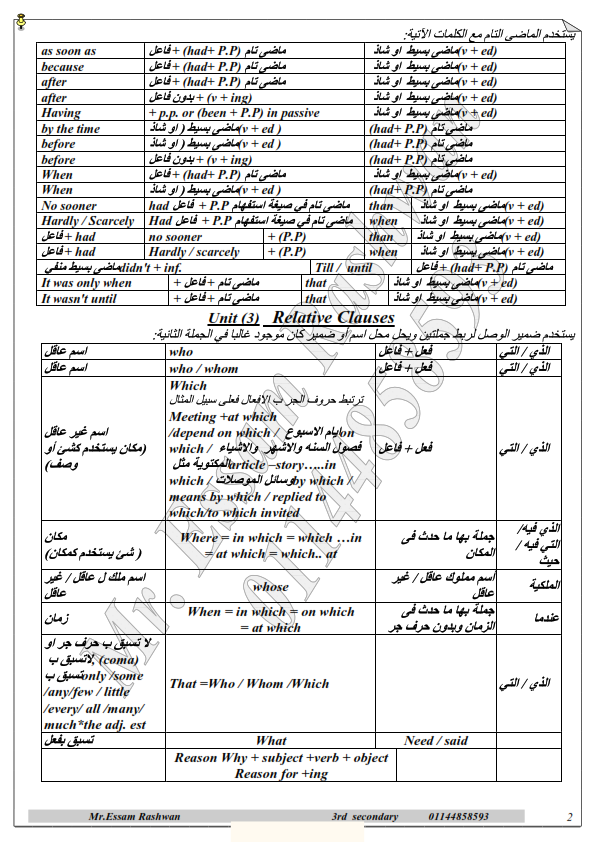 يستخدم الماضى التام مع الكلمات الآتية:
as soon as ماضي تام (had+ P.P) + فاعل ماضي بسيط او شاذ(v + ed)
because ماضي تام (had+ P.P) + فاعل ماضي بسيط او شاذ(v + ed)
after ماضي تام (had+ P.P) + فاعل ماضي بسيط او شاذ(v + ed)
after بدون فاعل + (v + ing) ماضي بسيط او شاذ(v + ed)
Having + p.p. or (been + P.P) in passive ماضي بسيط او شاذ(v + ed)
by the time ماضي بسيط ( او شاذ(v + ed ) (had+ P.P) ماضي تام
before ماضي بسيط ( او شاذ(v + ed ) (had+ P.P) ماضي تام
before بدون فاعل + (v + ing) (had+ P.P) ماضي تام
When ماضي تام (had+ P.P) + فاعل ماضي بسيط او شاذ(v + ed)
When ماضي بسيط ( او شاذ(v + ed ) (had+ P.P) ماضي تام
No sooner had فاعل + P.P ماضي تام في صيغة استفهام than ماضي بسيط او شاذ(v + ed)
Hardly / Scarcely Had فاعل + P.P ماضي تام في صيغة استفهام when ماضي بسيط او شاذ(v + ed)
فاعل + had no sooner + (P.P) than ماضي بسيط او شاذ(v + ed)
فاعل + had Hardly / scarcely + (P.P) when ماضي بسيط او شاذ(v + ed)
ماضي بسيط منفيdidn't + inf. Till / until ماضي تام (had+ P.P) + فاعل
It was only when ماضي تام + فاعل + that ماضي بسيط او شاذ(v + ed)
It wasn't until ماضي تام + فاعل + that ماضي بسيط او شاذ(v + ed)
Unit (3) Relative Clauses
يستخدم ضمير الوصل لربط جملتين ويحل محل اسم او ضمير كان موجود غالبا في الجملة الثانية:
اسم عاقل who فعل + فاعل الذي / التي
اسم عاقل who / whom فعل + فاعل الذي / التي
Which
ترتبط حروف الجر ب الافعال فعلى سبيل المثال
Meeting +at which
/depend on which / ايام الاسبوعon
اسم غير عاقل which / فصول السنه والاشهر والاشياء فعل + فاعل الذي / التي
(مكان يستخدم كشئ أو المكتوبة مثلarticle –story…..in
وصف) which / وسائل الموصلاتby which /
means by which / replied to
which/to which invited
مكان Where = in which = which …in جملة بها ما حدث فى الذي فيه/
( شئ يستخدم كمكان) = at which = which.. at المكان التي فيه /
حيث
اسم ملك ل عاقل / غير whose أسم مملوك عاقل / غير الملكية
عاقل عاقل
زمان When = in which = on which جملة بها ما حدث فى عندما
= at which الزمان وبدون حرف جر
لا تسبق ب حرف جر او
لاتسبق ب ,(coma)
تسبق بonly /some That =Who / Whom /Which الذي / التي
/any/few / little
/every/ all /many/
much*the adj. est
تسبق بفعل What Need / said
Reason Why + subject +verb + object
Reason for +ing
Mr.Essam Rashwan 3rd secondary 01144858593 2
Mr. Essam Rashwan
01144858593